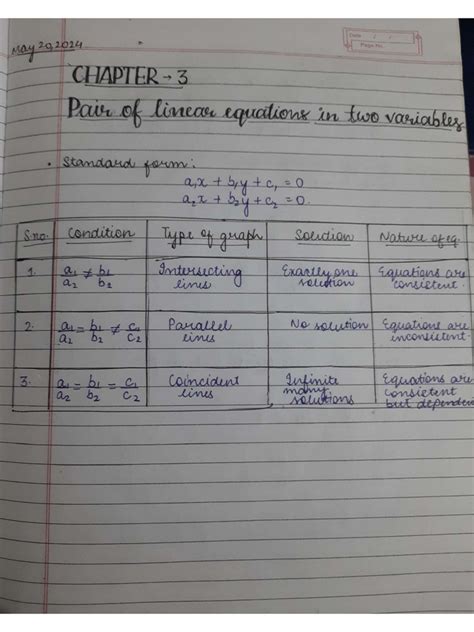 May 20, 2024
Date / /
Page No.
CHAPTER → 3
Pair of linear equations in two variables
• Standard form:
a₁x + b₁y + c₁ = 0
a₂x + b₂y + c₂ = 0.
S.no. Condition Type of graph Solution Nature of eq.
1. a₁/a₂ ≠ b₁/b₂ Intersecting lines Exactly one solution Equations are consistent.
2. a₁/a₂ = b₁/b₂ ≠ c₁/c₂ Parallel lines No solution Equations are inconsistent.
3. a₁/a₂ = b₁/b₂ = c₁/c₂ Coincident lines Infinite many solutions Equations are consistent but depende